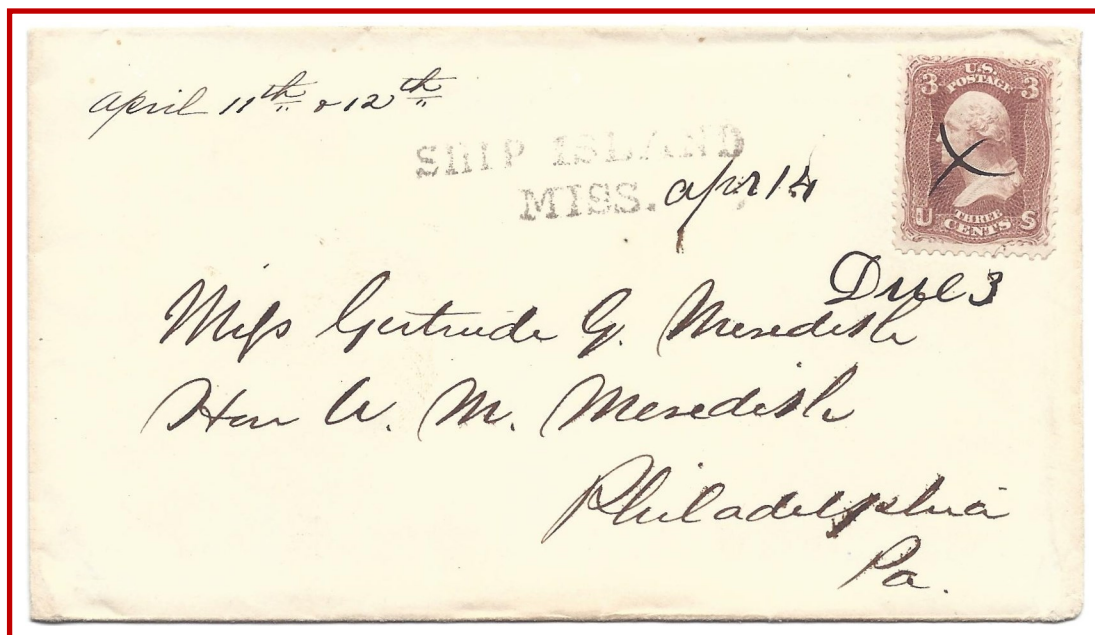 April 11th & 12th
SHIP ISLAND
MISS. Apr 14
3 U.S. POSTAGE 3
U THREE CENTS S
Due 3
Miss Gertrude G. Meredith
Hon W. M. Meredith
Philadelphia
Pa.